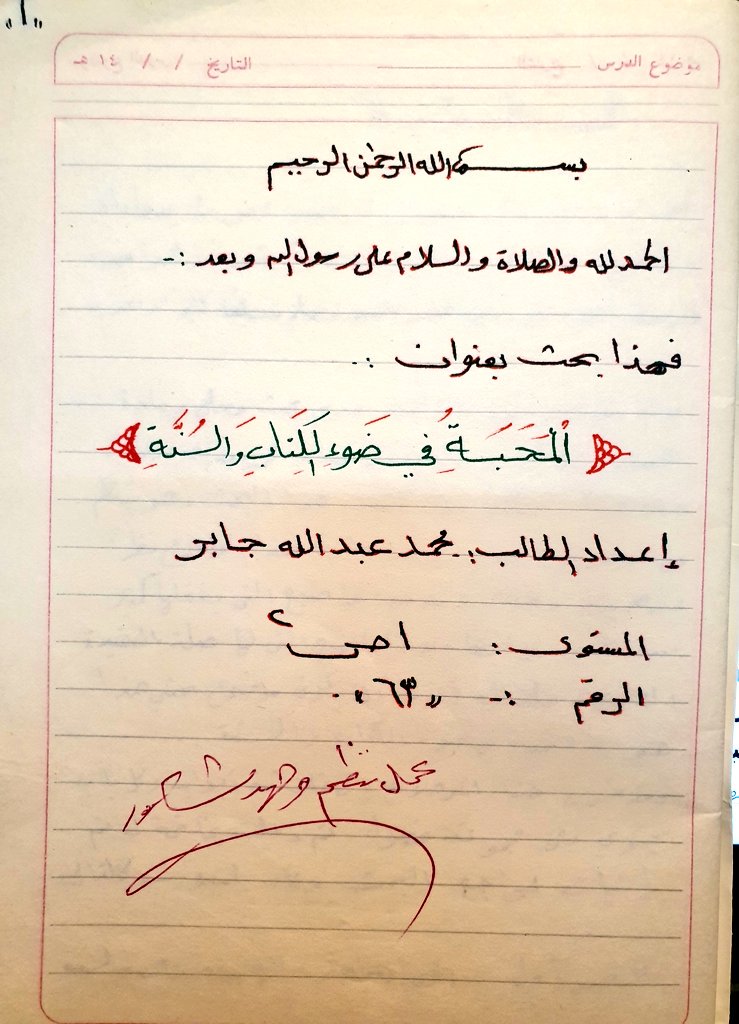 "١"
موضوع الدرس التاريخ / / ١٤ هـ
بسم الله الرحمن الرحيم
الحمد لله والصلاة والسلام على رسول الله وبعد :-
فهذا بحث بعنوان :-
الْمَحَبَّةُ فِي ضَوءِ الكِتَابِ وَالسُنَّةِ
إعداد الطالب: محمد عبد الله جابر
المستوى :
الرقم :- "٦٣" .
عمل منظم وجهد مشكور